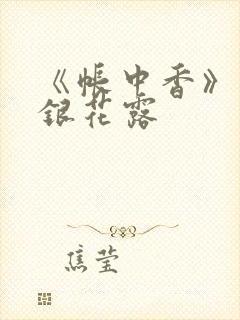 《帐中香》
银花露
焦莹